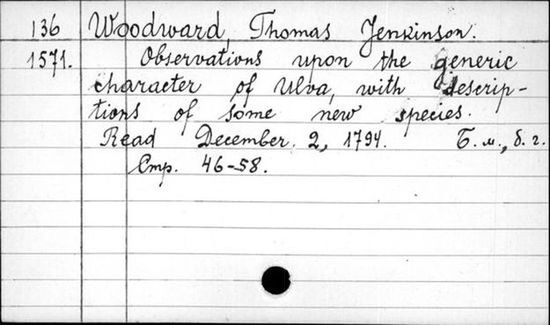 136 Woodward, Thomas Jenkinson.
1571. Observations upon the generic
character of Ulva, with descrip-
tions of some new species.
Read December. 2, 1794. Б. м., б. г.
Стр. 46-58.